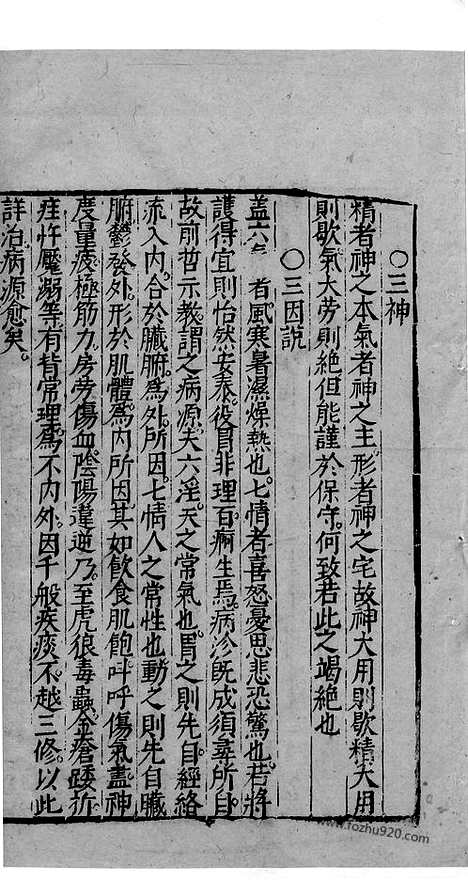 〇三神
精者神之本氣者神之主形者神之宅故神大用則歇精大用
則歇氣大劳則絶但能謹於保守何致若此之竭絶也
〇三因説
盖六 者風寒暑濕燥熱也七情者喜怒憂思悲恐驚也若將
護得宜則怡然安泰役冒非理百痾生焉病診既成須尋所自
故前哲示教謂之病源夫六淫天之常氣也冒之則先自經絡
流入内合於臓腑爲外所因七情人之常性也動之則先自臓
腑鬱發外形於肌體爲内所因其如飲食肌飽呌呼傷氣盡神
度量疲極筋力房劳傷血陰陽違逆乃至虎狼毒蟲金瘡踒折
疰忤魘溺等有背常理爲不内外因千般疾痰不越三修以此
詳治病源愈矣
www.fozhu920.com